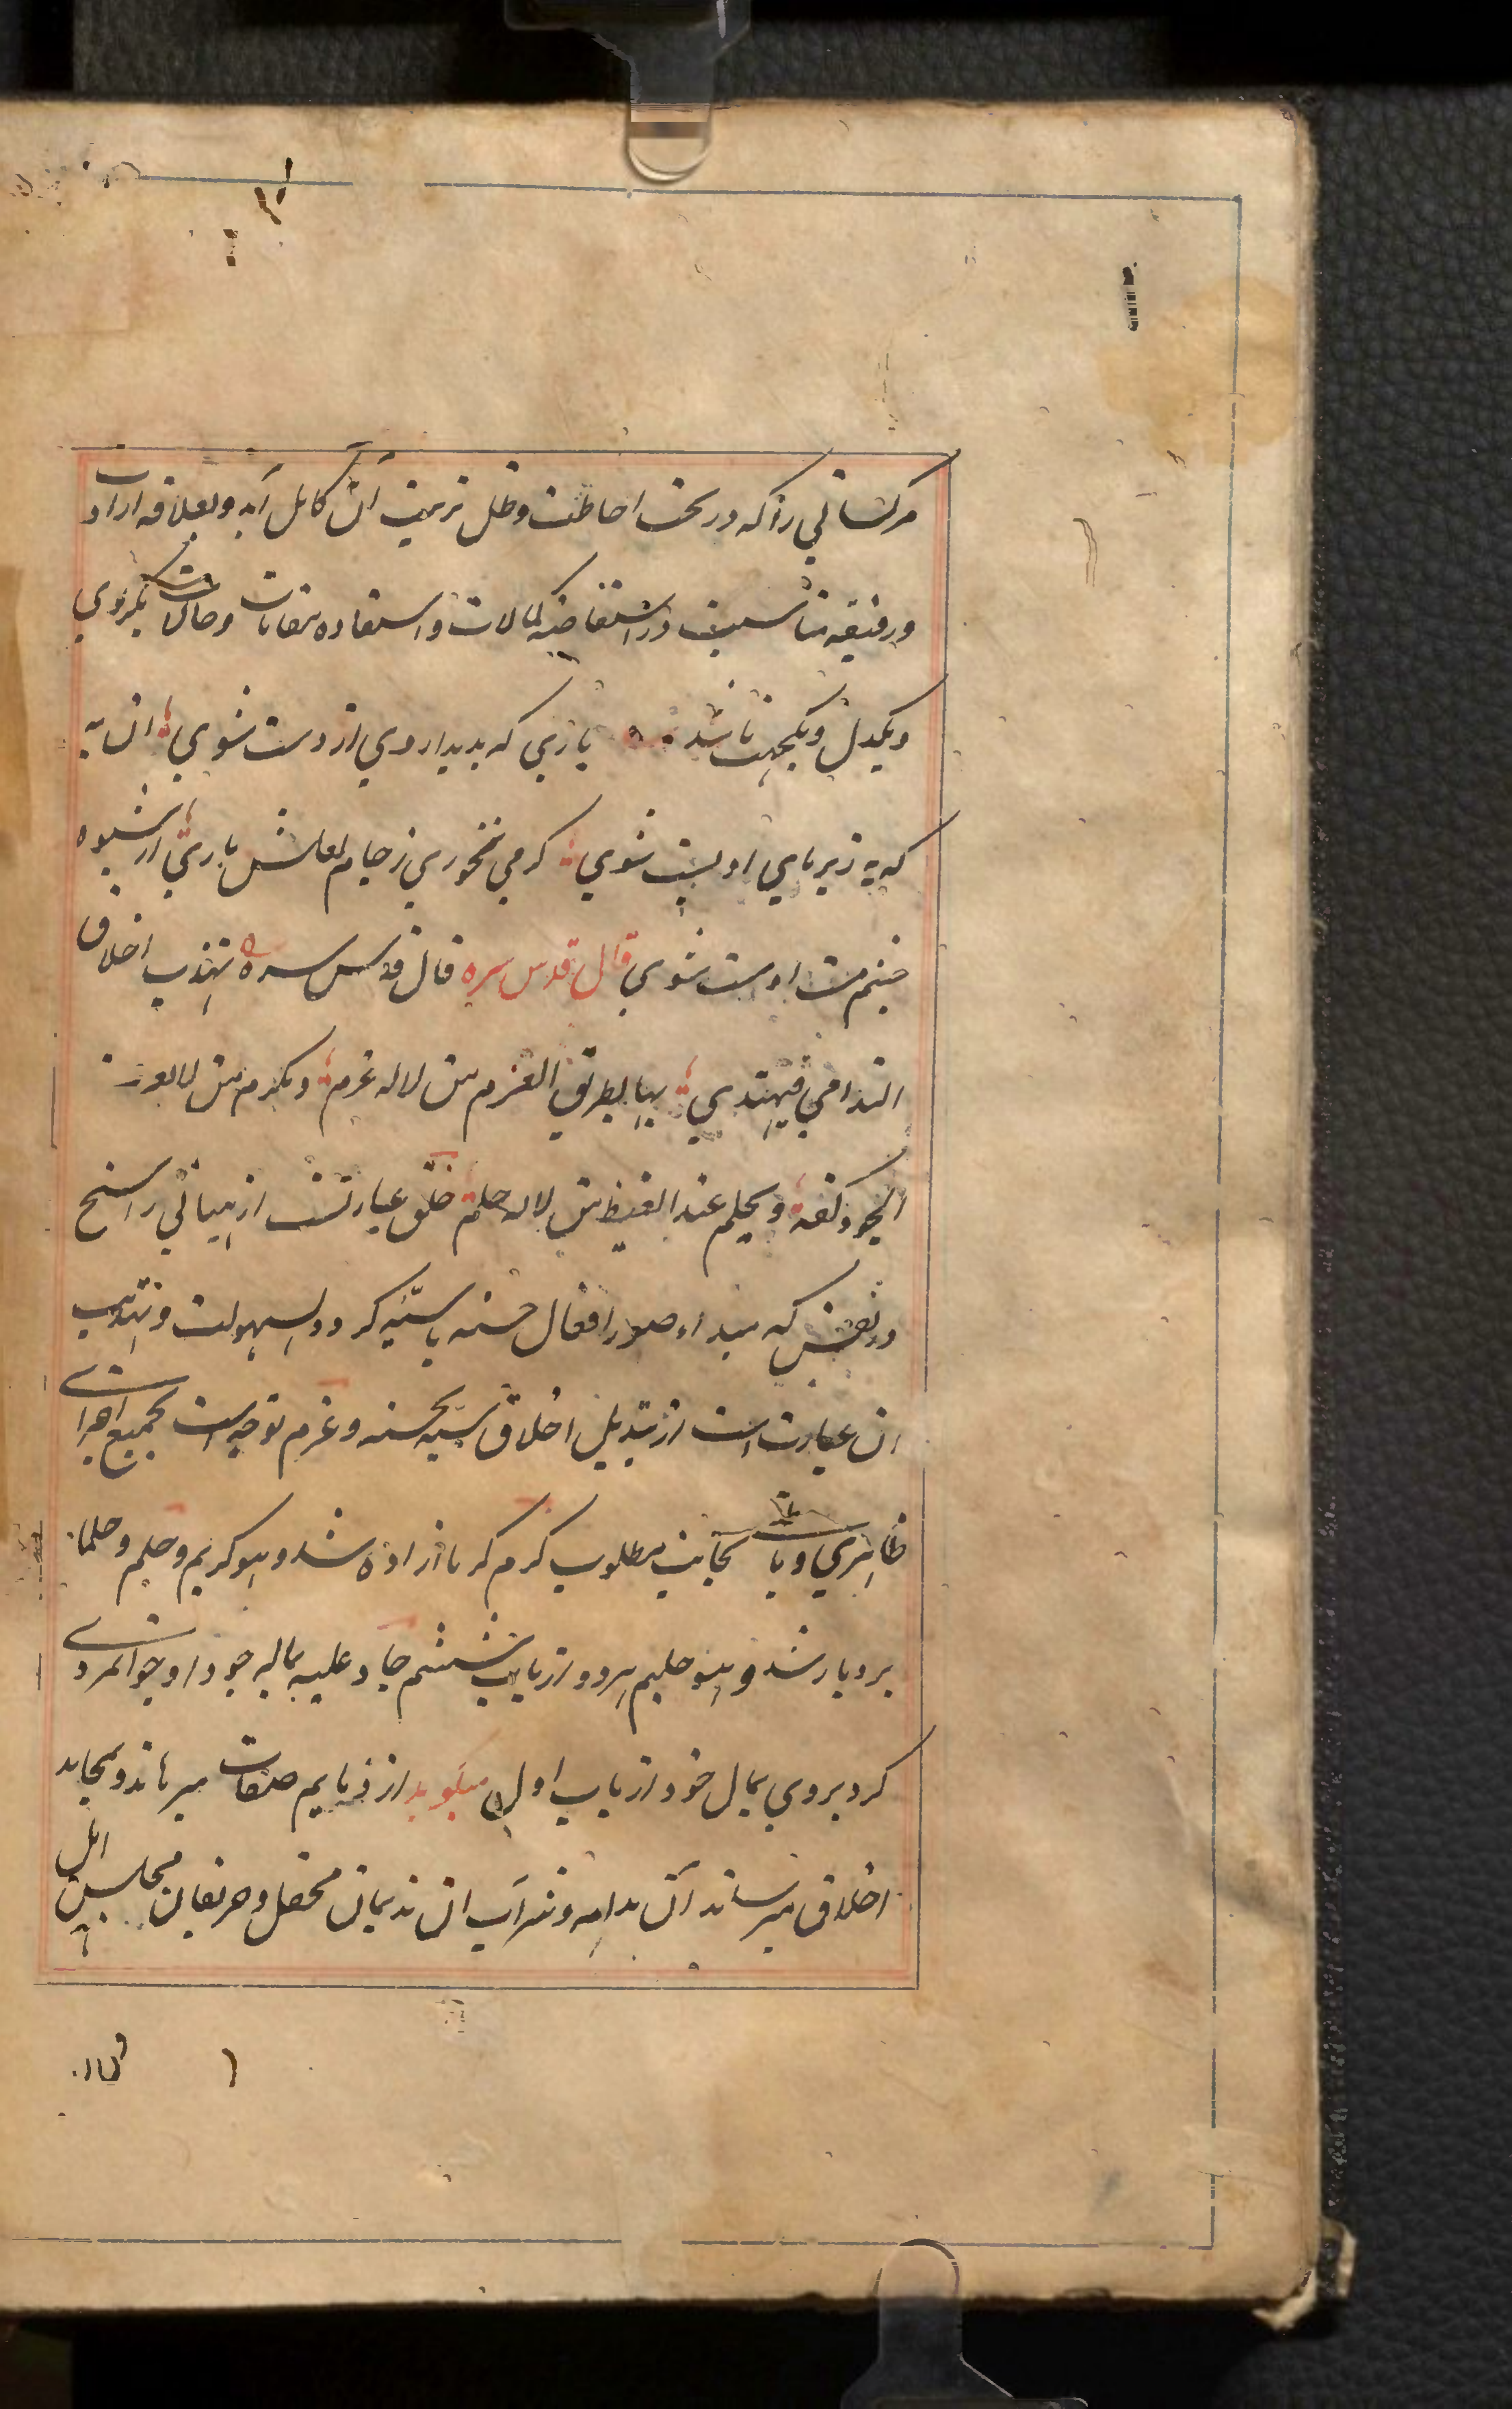 مر کسانی را که در تحت احاطت و ظل تربیت آن کامل آید و بعلاقه ارادت
و رقیقه مناسبت در استفاضه کمالات و استفاده مقامات و حالات یکروی
و یکدل و یکجهت باشد یاری که بدیدار وی از دست شوی ان به
که به زیر پای او پست شوی کر می نخوری ز جام لعلش باری از شیوه
چشم مست او مست شوی قال قدس سره قال قدس سره تهذب اخلاق
الندامی فیهتدی بها لطریق العزم من لاله عزم و یکرم من لا یعرف
الجود کفه و یحلم عند الغیظ من لا له حلم خلق عبارتست از هیاتی راسخ
در نفس که مبداء صدور افعال حسنه یا سیئه کردد بسهولت و تهذیب
ان عبارت است از تبدیل اخلاق سیئه بحسنه و عزم توجه است بجمیع اجزای
ظاهری و با بجانب مطلوب کرم کرما ازاده شد و هو کریم و حلم و حلما
بردبار شد و هو حلیم هر دو از باب ششم جاد علیه بماله جودا و جوانمردی
کرد بر وی بمال خود از باب اول میکوید از ذمایم صفات میرهاند و بمحامد
اخلاق میرساند آن مدامه و شراب ان ندیمان محفل و حریفان مجلس اهل